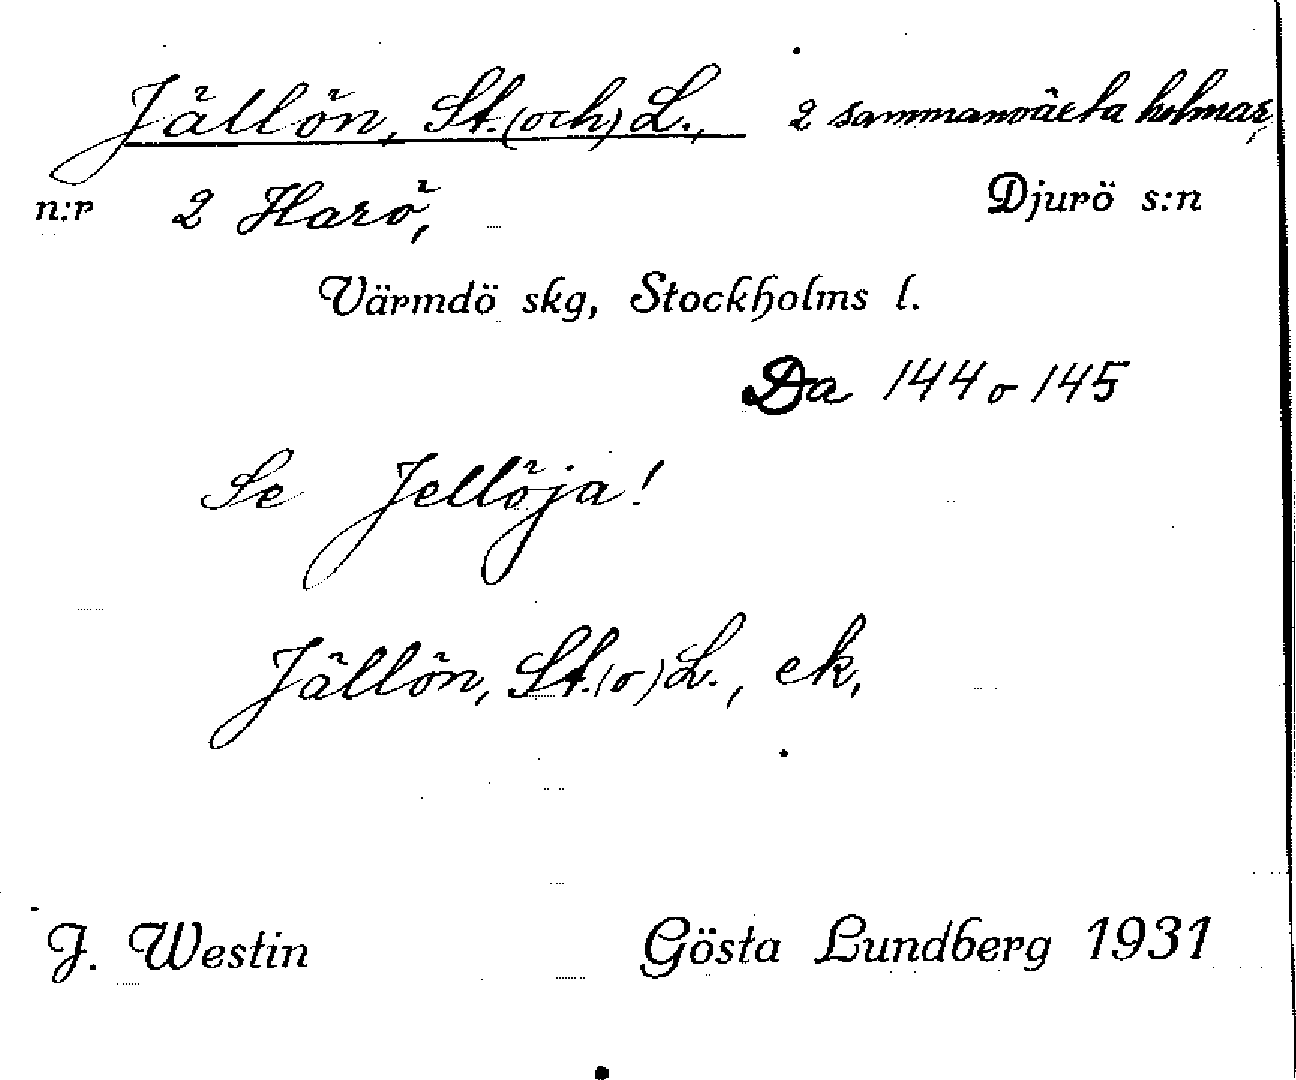 Jällön, St. (och) L., 2 sammanväxta holmar,
n:r 2 Harö, Djurö s:n
Värmdö skg, Stockholms l.
Da 144 o 145
Se Jellöja!
Jällön, St. (o) L., ek,
J. Westin Gösta Lundberg 1931